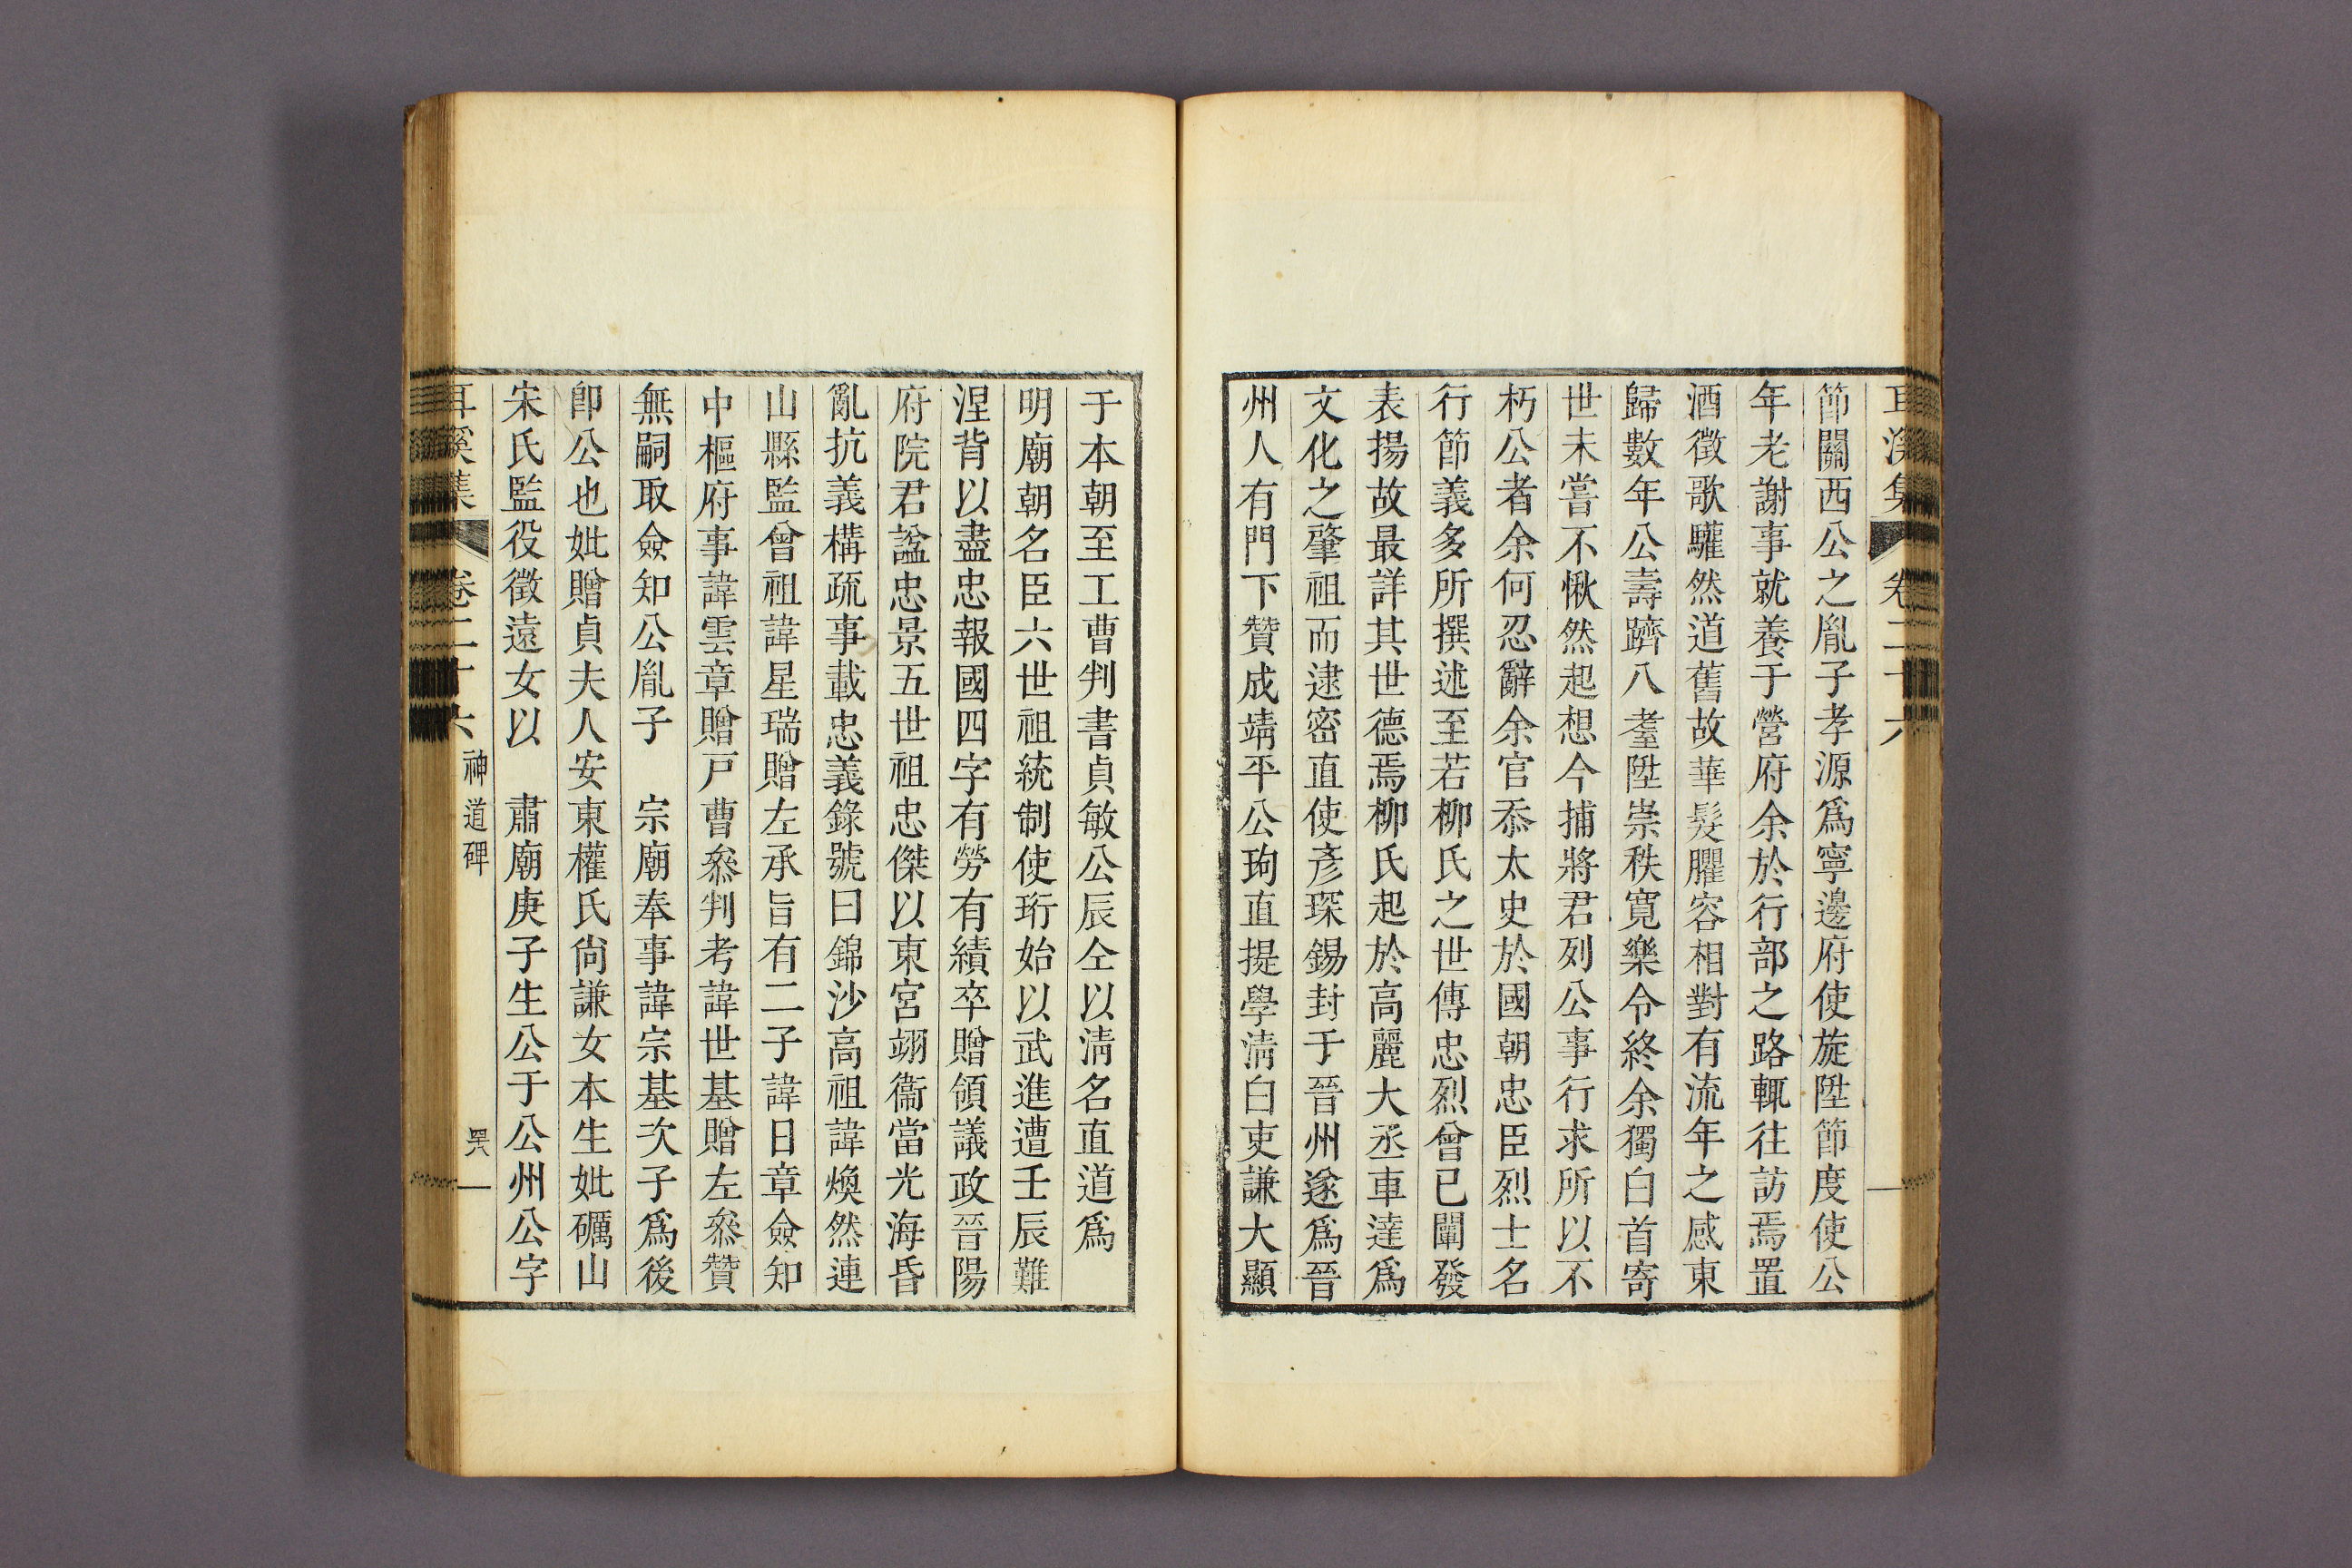 耳溪集　卷二十六
節關西公之胤子孝源爲寧邊府使旋陞節度使公
年老謝事就養于營府余於行部之路輒往訪焉置
酒徵歌驩然道舊故華髮臞容相對有流年之感東
歸數年公壽躋八耋陞崇秩寬樂令終余獨白首寄
世未嘗不愀然起想今捕將君列公事行求所以不
朽公者余何忍辭余官忝太史於國朝忠臣烈士名
行節義多所撰述至若柳氏之世傳忠烈曾已闡發
表揚故最詳其世德焉柳氏起於高麗大丞車達爲
文化之肇祖而逮密直使彥琛錫封于晉州遂爲晉
州人有門下贊成靖平公珣直提學淸白吏謙大顯
于本朝至工曹判書貞敏公辰仝以淸名直道爲
明廟朝名臣六世祖統制使珩始以武進遭壬辰難
涅背以盡忠報國四字有勞有績卒贈領議政晉陽
府院君諡忠景五世祖忠傑以東宮翊衞當光海昏
亂抗義構疏事載忠義錄號曰錦沙高祖諱煥然連
山縣監曾祖諱星瑞贈左承旨有二子諱日章僉知
中樞府事諱雲章贈戶曹叅判考諱世基贈左叅贊
無嗣取僉知公胤子　宗廟奉事諱宗基次子爲後
卽公也妣贈貞夫人安東權氏尙謙女本生妣礪山
宋氏監役徵遠女以　肅廟庚子生公于公州公字
耳溪集　卷二十六　神道碑